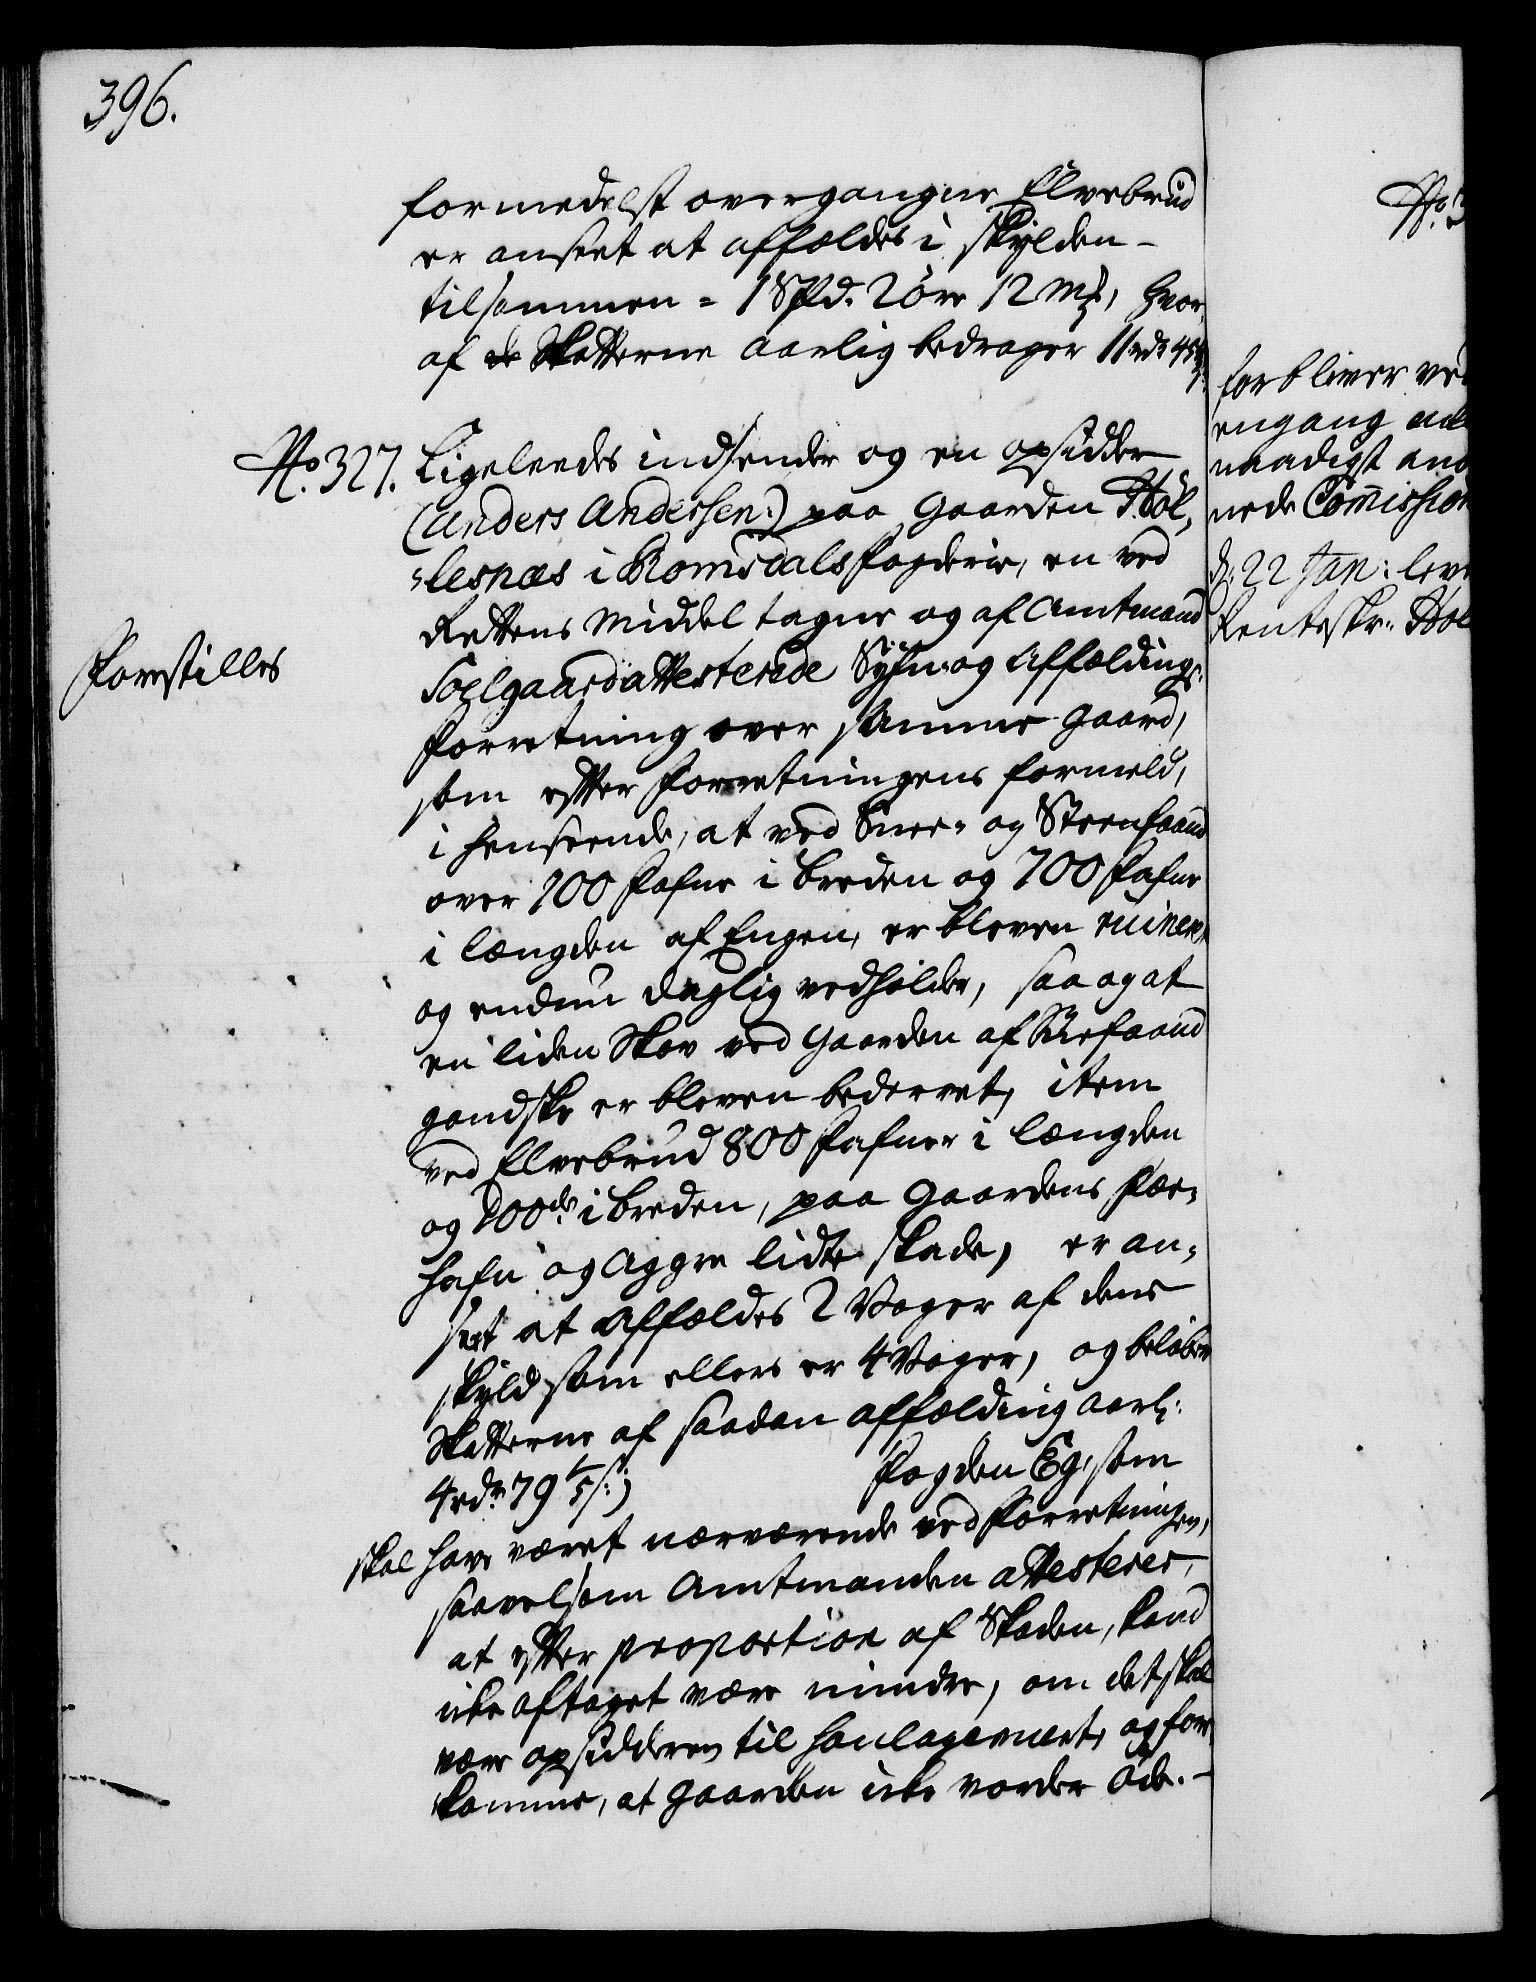 396.
formedelst overgangne Elvebrud
er anseet at affældes i Skylden -
tilsammen = 1 Spd. 2 öre 12 mk, hvor,
af de Skatterne aarlig bedrager 11 rdr 45
No 327. Ligeleedes indsender og en opsidder
(Anders Andersen:) paa Gaarden Höl,
"lesnæs i Romsdals Fogderie, en ved
Rettens Middel tagne og af Amtmand
Forestilles
Soelgaard attesterede Syhn- og Affældings-
Forretning over samme Gaard,
som efter Forretningens formeld,
i henseende, at ved Snee- og Steenfaand
over 100 Fafne i breden og 700 Fafne
i længden af Engen, er bleven ruinert,
og endnu daglig vedholder, saa og at
en liden Skov ved Gaarden af Sneefaand
gandske er bleven bedervet, item
ved Elvebrud 800 Fafner i længden
og 200 do i breden, paa Gaardens Fæe-
hafn og Aggre lidte Skade, er an-
seet at Affældes 2 Voger af dens
skyld som ellers er 4 Voger, og beløber
Skatterne af saadan affælding aarl:
4 rdr 79 1/5 s:) Fogden Eg, som
skal have været nærværende ved Forretningen,
saavelsom Amtmanden attesterer,
at efter proportion af Skaden, kand
icke aftaget være mindre, om det skal
være opsidderen til Soulagement, og for,
komme, at Gaarden icke vorder Öde. -